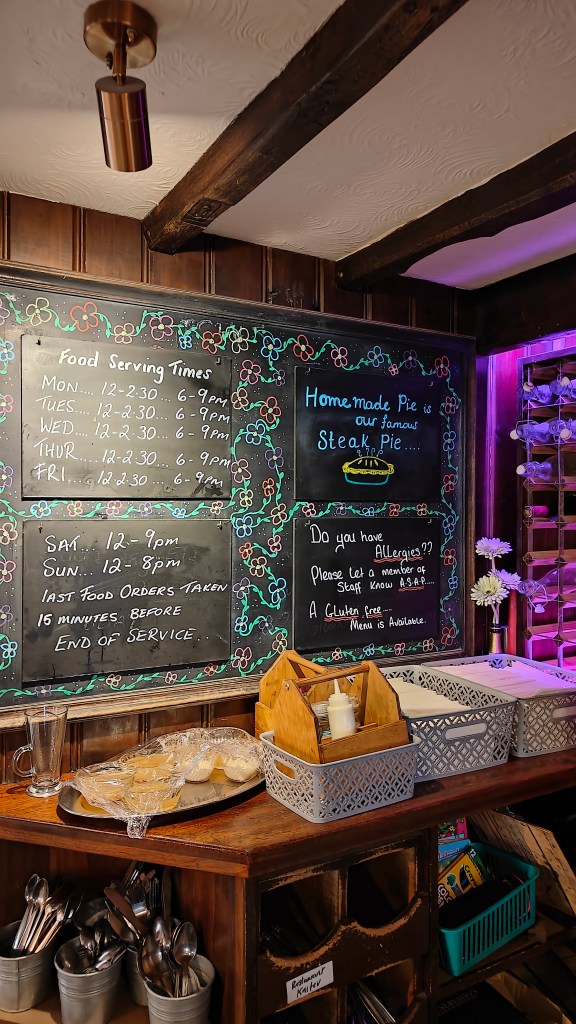 Food Serving Times
MON.... 12-2.30... 6-9pm
TUES.... 12-2.30... 6-9pm
WED.... 12-2.30... 6-9pm
THUR.... 12-2.30... 6-9pm
FRI..... 12-2.30... 6-9pm
SAT... 12-9pm
SUN... 12-8pm
LAST FOOD ORDERS TAKEN
15 MINUTES BEFORE
END OF SERVICE
Homemade Pie is
our famous
Steak Pie....
Do you have
Allergies??
Please let a member of
Staff know A.S.A.P....
A Gluten free....
Menu is Available.
Restaurant